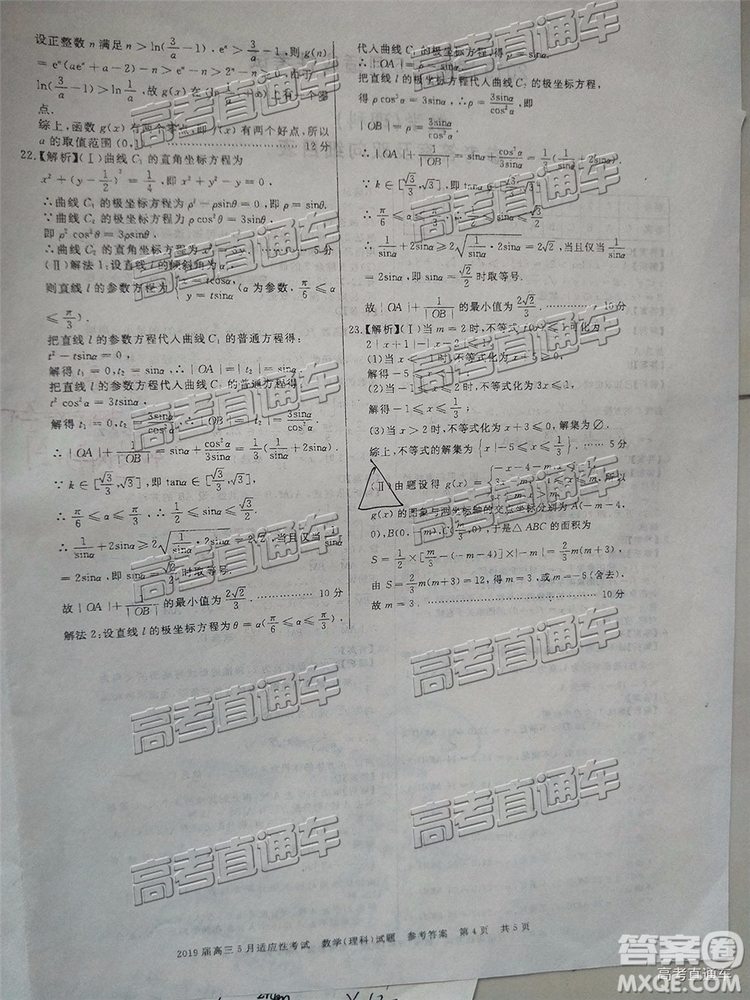 设正整数 n 满足 n>ln(3/a-1)·eⁿ>3/a-1,则 g(n)
=eⁿ(aeⁿ+a-2)-n>eⁿ-n>2ⁿ-n>0,由于
ln(3/a-1)>ln 1/a,故 g(x) 在(ln 1/a,+∞)上有一个零
点.
综上,函数 g(x) 有两个零点,即 f(x) 有两个好点,所以
a 的取值范围(0,1). 12分
22.【解析】(Ⅰ)曲线 C₁ 的直角坐标方程为
x²+(y-1/2)²=1/4,即 x²+y²-y=0.
∴曲线 C₁ 的极坐标方程为 ρ²-ρsinθ=0,即 ρ=sinθ.
∵曲线 C₂ 的极坐标方程为 ρcos²θ=3sinθ,
即 ρ²cos²θ=3ρsinθ,
∴曲线 C₂ 的直角坐标方程为 5分
(Ⅱ)解法 1:设直线 l 的倾斜角为 α,
则直线 l 的参数方程为 { x=tcosα, y=tsinα (α 为参数, π/6≤α
≤π/3).
把直线 l 的参数方程代入曲线 C₁ 的普通方程得:
t²-tsinα=0,
解得 t₁=0,t₂=sinα,∴|OA|=|t₂|=sinα
把直线 l 的参数方程代入曲线 C₂ 的普通方程得:
t²cos²α=3tsinα,
解得 t₁=0,t₂=3sinα/cos²α,∴|OB|=3sinα/cos²α
∴|OA|+1/|OB|=sinα+cos²α/3sinα=1/3(1/sinα+2sinα).
∵k∈[√3/3,√3],即 tanα∈[√3/3,√3],
∴π/6≤α≤π/3,∴1/2≤sinα≤√3/2,
∴1/sinα+2sinα≥2√(1/sinα·2sinα)=2√2,当且仅当 1/sinα
=2sinα,即 sinα=√2/2 时取等号.
故|OA|+1/|OB|的最小值为 2√2/3. 10分
解法 2:设直线 l 的极坐标方程为 θ=α(π/6≤α≤π/3)
代入曲线 C₁ 的极坐标方程,得 ρ=sinα,
∴|OA|=ρ=sinα.
把直线 l 的极坐标方程代入曲线 C₂ 的极坐标方程,
得 ρcos²α=3sinα,∴ρ=3sinα/cos²α,即
|OB|=3sinα/cos²α.
∴|OA|+1/|OB|=sinα+cos²α/3sinα=1/3(1/sinα+2sinα).
∵k∈[√3/3,√3],即 tanα∈[√3/3,√3],
∴π/6≤α≤π/3,
∴1/sinα+2sinα≥2√(1/sinα·2sinα)=2√2,当且仅当
1/sinα=2sinα,即 sinα=√2/2 时取等号.
故|OA|+1/|OB|的最小值为 2√2/3. 10分
23.【解析】(Ⅰ)当 m=2 时,不等式 f(x)≤1 可化为
2|x+1|-|x-2|≤1.
(1)当 时,不等式化为 x+5≥0,
解得-5≤x<-1;
(2)当 时,不等式化为 3x≤1,
解得-1≤x≤1/3;
(3)当 时,不等式化为 x+3≤0,解集为∅.
综上,不等式的解集为{x|-5≤x≤1/3}. 5分
(Ⅱ)由题设得 g(x)=
g(x)的图象与两坐标轴的交点坐标分别为 A(-m-4,
0),B(0, ),于是△ABC 的面积为
S=1/2×[m/3-(-m-4)]×|-m|=
由 S=2/3m(m+3)=12,得 m=3 或 m=-6(舍去),
故 m=3. 10分
2019 届高三 5 月适应性考试 数学(理科)试题 参考答案 第 4 页 共 5 页
高考直通车
高考直通车
高考直通车
高考直通车
高考直通车
高考直通车
高考直通车
高考直通车
高考直通车
高考直通车
答案圈
高考直通车
MXQE.COM